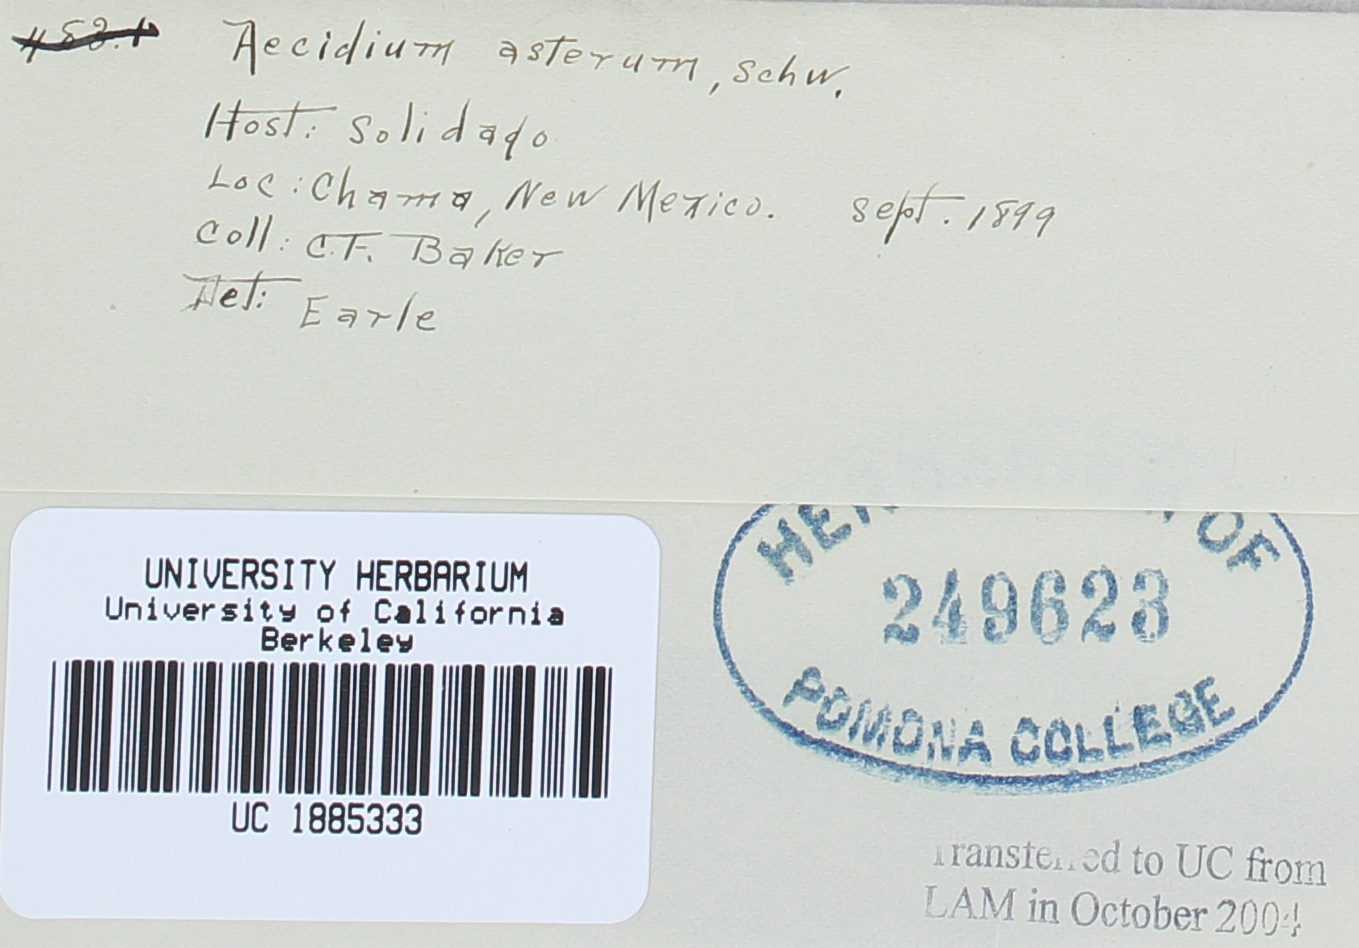 Aecidium asterum, Schw.
Host: Solidago
Loc: Chama, New Mexico. Sept. 1899
Coll: C.F. Baker
Det: Earle
UNIVERSITY HERBARIUM
University of California
Berkeley
UC 1885333
OF
249623
POMONA COLLEGE
Transferred to UC from
LAM in October 2004